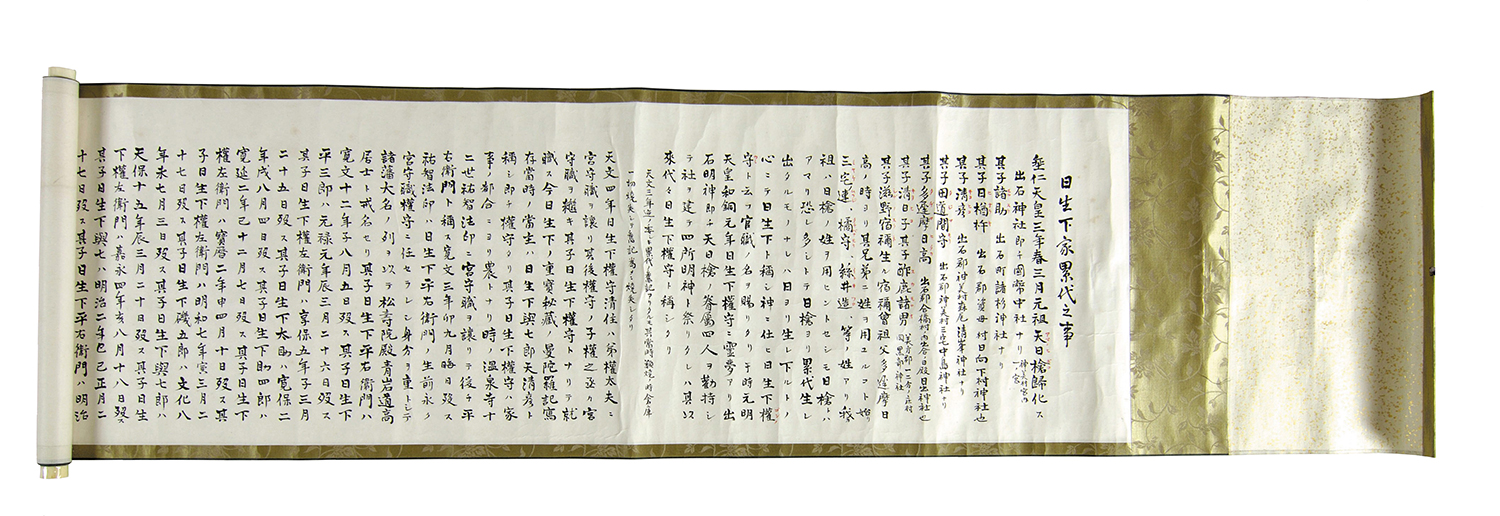 日生下家累代之事
垂仁天皇三年春三月元祖天日槍歸化ス
出石神社即チ國幣中社ナリ 神美村宮内ノ宮
其子諸助 出石町諸杉神社ナリ
其子日楢杵 出石郡資母村日向下村神社也
其子清彦 出石郡神美村森尾清峯神社ナリ
其子田道間守 出石郡神美村三宅中島神社ナリ
其子多遲摩日高 出石郡合橋村内出合日殿日出神社也
其子清日子其子酢鹿諸男 美方郡
其子滋野宿禰生ル宿禰曾祖父多遲摩日
高ノ時ヨリ其兄弟ニ姓ヲ用ユルコト始リ
三宅連、橘守、絲井造 等ノ姓アリ我
祖ハ日槍ノ姓ヲ用ヒントセシモ日槍トハ
アマリ恐レ多シトテ日槍ヨリ累代生レ
出クルモノナレハ日ヨリ生レ下ルトノ
心ニテ日生下ト稱シ神ニ仕ヒ日生下權
守ト云フ官職ノ名ヲ賜リタリ于時元明
天皇和銅元年日生下權守ニ靈夢アリ出
石明神即チ天日槍ノ眷屬四人ヲ勧持シ
テ社ヲ建テ四所明神ト祭クリタレハ其以
來代々日生下權守ト稱シタリ
天文三年迄ノ本家累代ノ舊記アリタルモ其當時 時倉庫
一切燒失シタリ舊記爲メニ燒失シタリ
天文四年日生下權守清住ハ弟權太夫ニ
宮守職ヲ讓リ其後權守ノ子權之丞カ宮
守職ヲ繼キ其子日生下權守トナリテ就
職ス今日生下ノ重寶秘藏ノ曼陀羅記寫
存當時ノ當主ハ日生下與七郎天清彦ト
稱シ即チ權守タリ其子日生下權守ハ家
事ノ都合ニヨリ農トナリ時ノ温泉寺十
二世祐智法印ニ宮守職ヲ讓リテ後チ平
右衛門ト稱ス寛文三年卯九月晦日歿ス
祐智法印ハ日生下平右衛門ノ生前永ク
宮守職權守ニ任セラレシ身分ヲ重トシテ
諸藩大名ノ列ヲ以テ松壽院殿青岩道高
居士ト戒名セリ其子日生下平右衛門ハ
寛文十二年子八月五日歿ス其子日生下
平三郎ハ元禄元年辰三月二十六日歿ス
其子日生下權左衛門ハ享保五年子三月
二十五日歿ス其子日生下太助ハ寛保二
年戌八月四日歿ス其子日生下助四郎ハ
寛延二年巳十二月七日歿ス其子日生下
權左衛門ハ寶暦二年申四月十日歿ス其
子日生下權左衛門ハ明和七年寅三月二
十七日歿ス其子日生下磯五郎ハ文化八
年未七月三日歿ス其子日生下與七郎ハ
天保十五年辰三月二十日歿ス其子日生
下權左衛門ハ嘉永四年亥八月十八日歿ス
其子日生下與七ハ明治二年巳正月二
十七日歿ス其子日生下平右衛門ハ明治